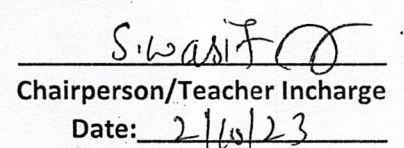 S. Wasif
Chairperson/Teacher Incharge
Date: 2/10/23